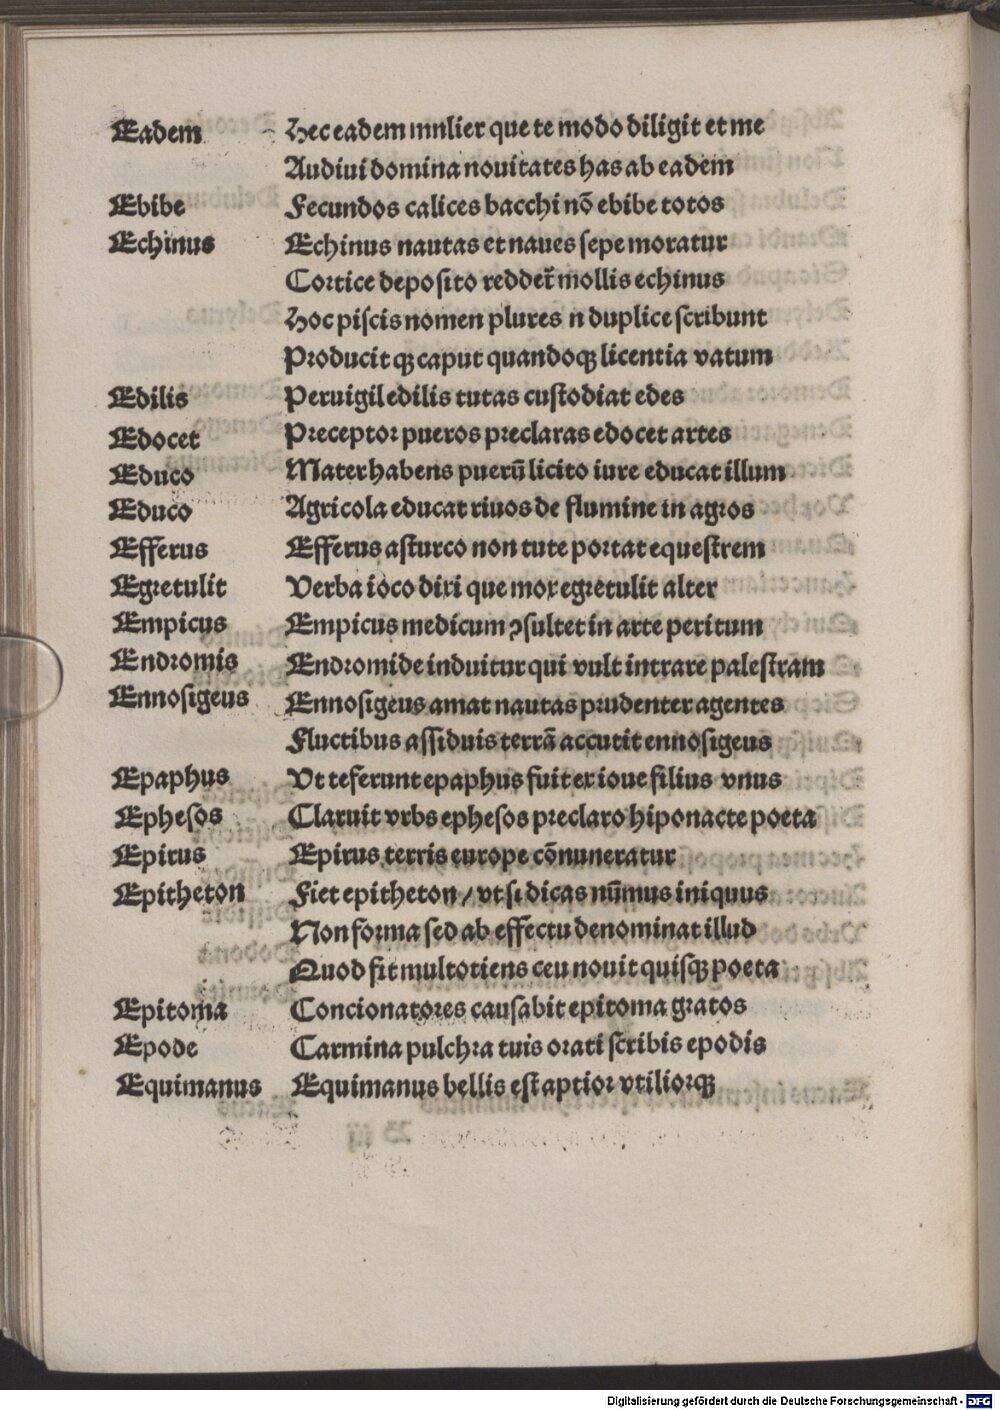 Eadem Hec eadem mnlier que te modo diligit et me
Audiui domina nouitates has ab eadem
Ebibe Fecundos calices bacchi nō ebibe totos
Echinus Echinus nautas et naues sepe moratur
Cortice deposito reddet̄ mollis echinus
Hoc piscis nomen plures n duplice scribunt
Producit qꝫ caput quandoqꝫ licentia vatum
Edilis Peruigil edilis tutas custodiat edes
Edocet Preceptor pueros preclaras edocet artes
Educo Mater habens puerū licito iure educat illum
Educo Agricola educat riuos de flumine in agros
Efferus Efferus asturco non tute portat equestrem
Egretulit Verba ioco dixi que mox egretulit alter
Empicus Empicus medicum ꝯsultet in arte peritum
Endromis Endromide induitur qui vult intrare palestram
Ennosigeus Ennosigeus amat nautas prudenter agentes
Fluctibus assiduis terrā accutit ennosigeus
Epaphus Vt teferunt epaphus fuit ex ioue filius vnus
Ephesos Claruit vrbs ephesos preclaro hiponacte poeta
Epirus Epirus terris europe cōnuneratur
Epitheton Fiet epitheton / vt si dicas nūmus iniquus
Non forma sed ab effectu denominat illud
Quod fit multotiens ceu nouit quisqꝫ poeta
Epitoma Concionatores causabit epitoma gratos
Epode Carmina pulchra tuis orati scribis epodis
Equimanus Equimanus bellis est aptior vtiliorqꝫ
Digitalisierung gefördert durch die Deutsche Forschungsgemeinschaft - DFG